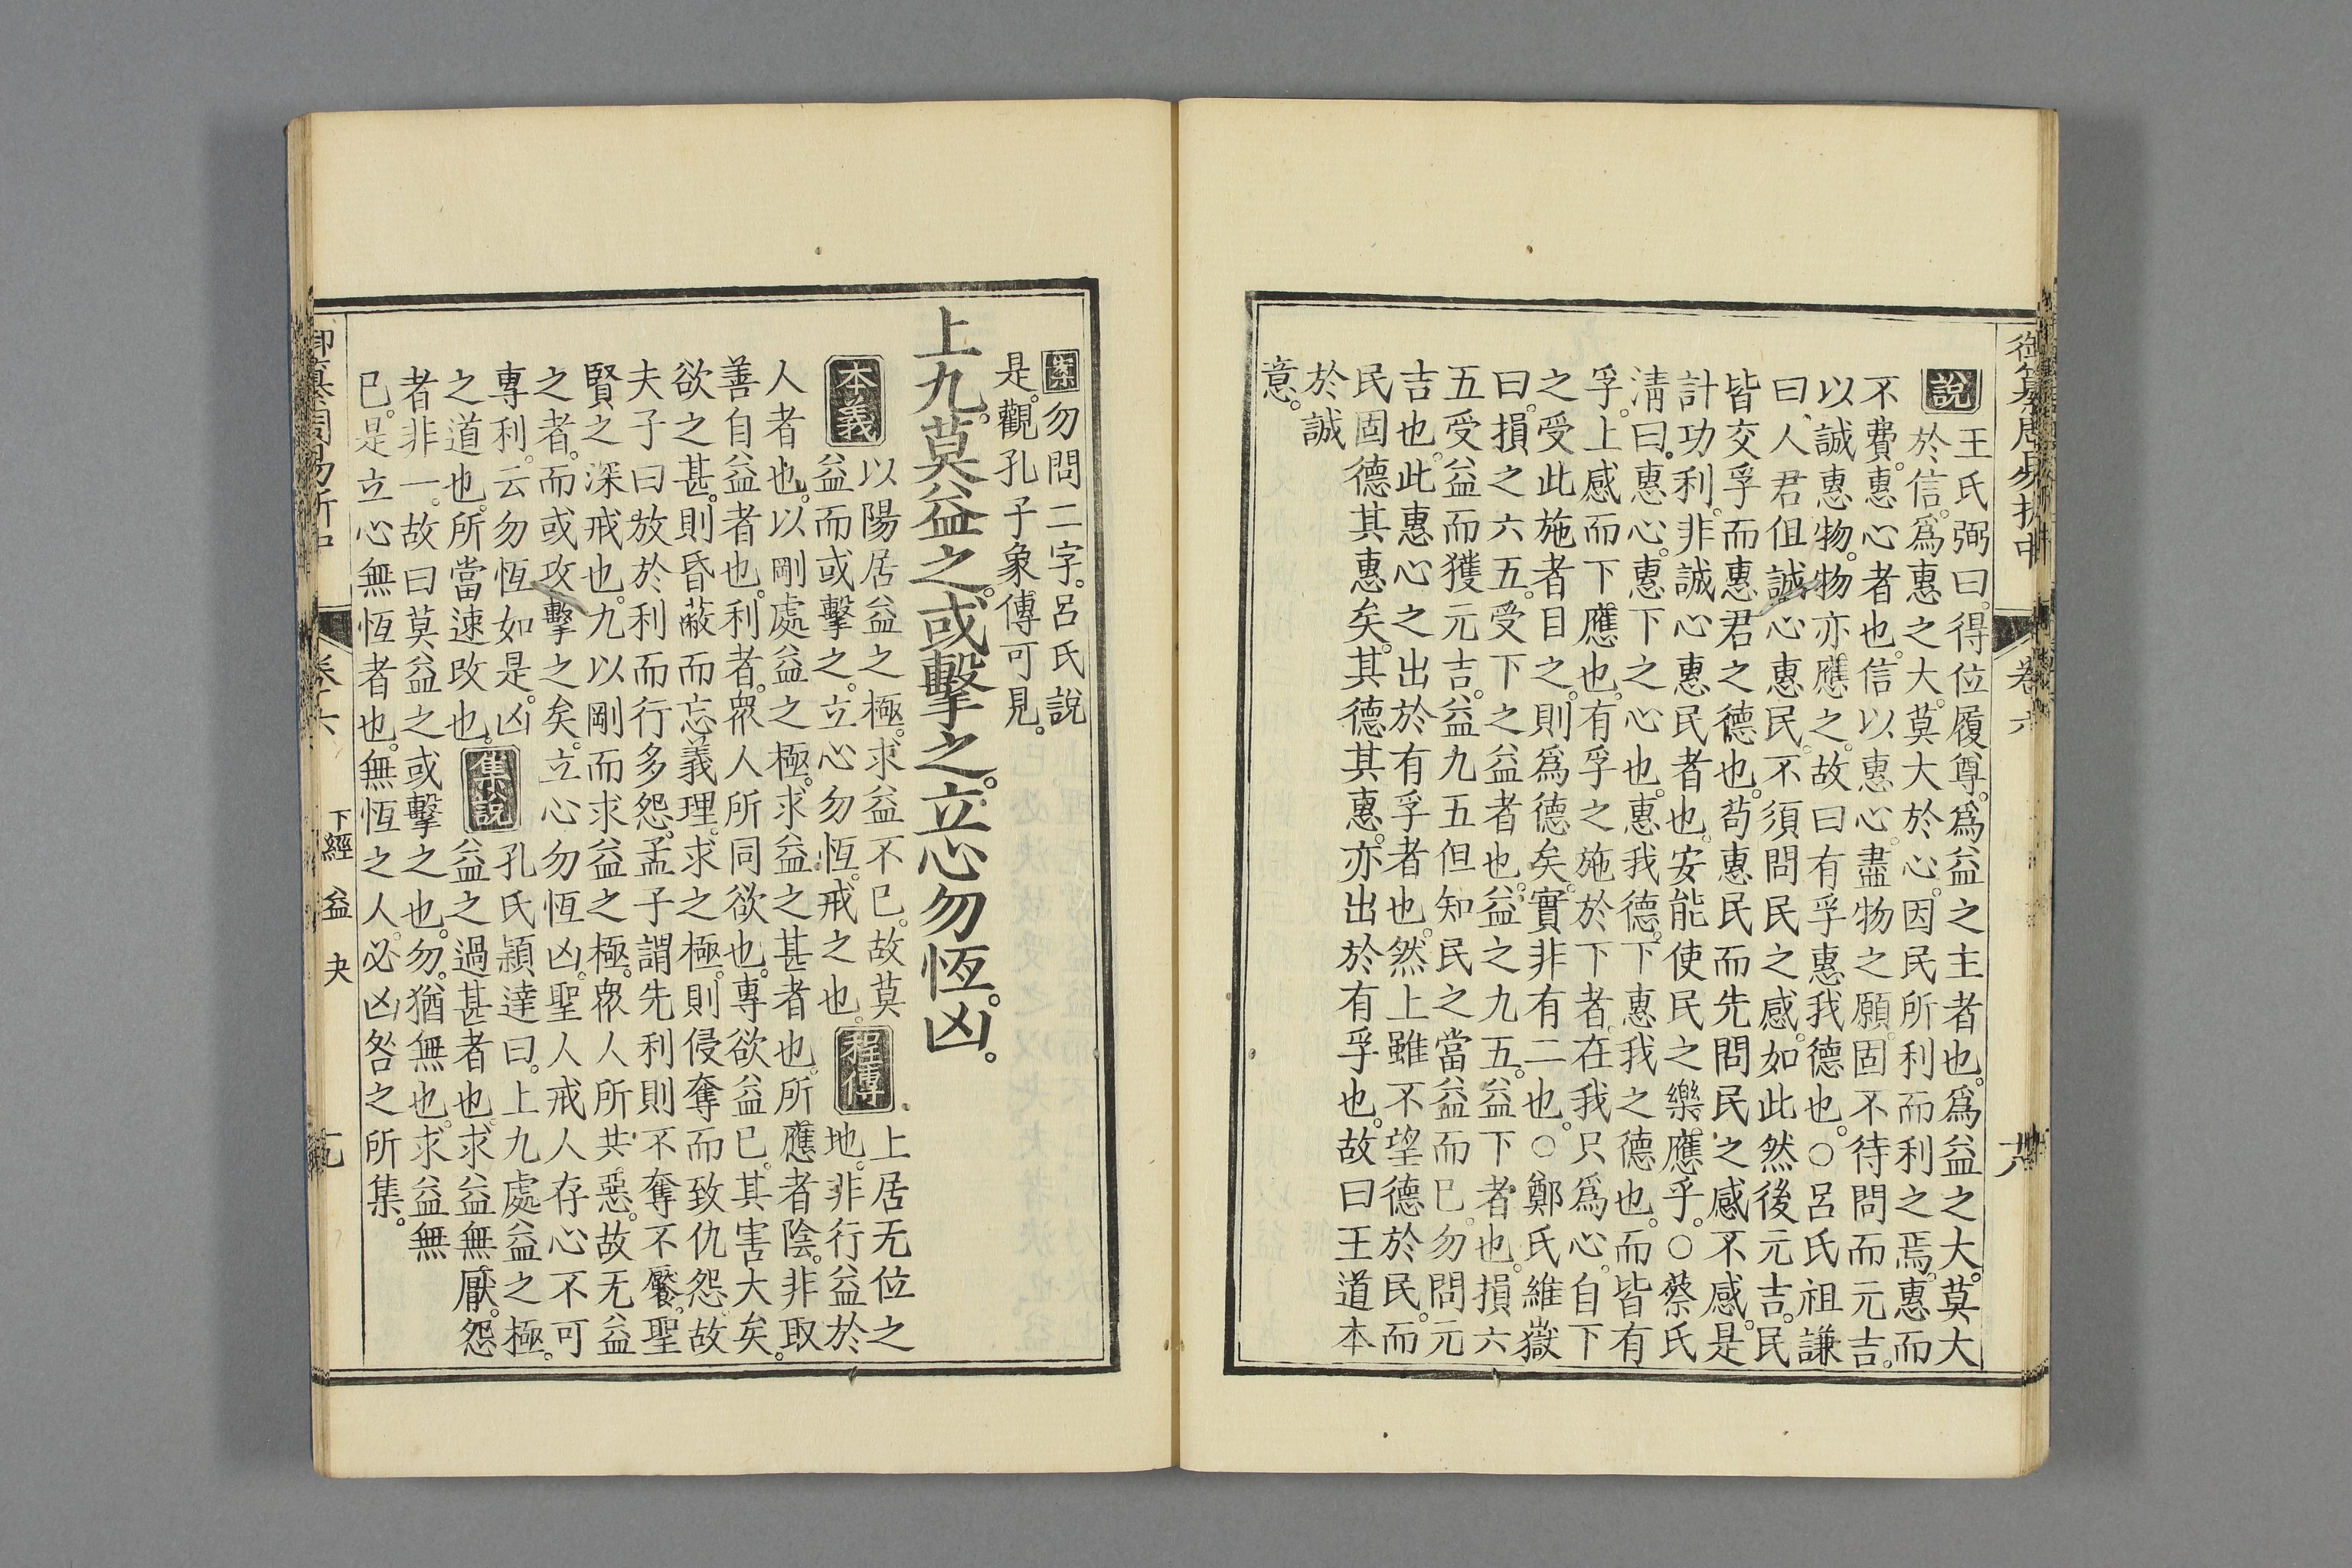 御纂周易折中 卷六
說
王氏弼曰。得位履尊。爲益之主者也。爲益之大。莫大
於信。爲惠之大。莫大於心。因民所利而利之焉。惠而
不費。惠心者也。信以惠心。盡物之願。固不待問而元吉。
以誠惠物。物亦應之。故曰有孚惠我德也。○呂氏祖謙
曰。人君但誠心惠民。不須問民之感。如此然後元吉。民
皆交孚而惠君之德也。苟惠民而先問民之感不感。是
計功利。非誠心惠民者也。安能使民之樂應乎。○蔡氏
淸曰。惠心。惠下之心也。惠我德。下惠我之德也。而皆有
孚。上感而下應也。有孚之施於下者。在我只爲心。自下
之受此施者目之。則爲德矣。實非有二也。○鄭氏維嶽
曰。損之六五。受下之益者也。益之九五。益下者也。損六
五受益而獲元吉。益九五但知民之當益而已。勿問元
吉也。此惠心之出於有孚者也。然上雖不望德於民。而
民固德其惠矣。其德其惠。亦出於有孚也。故曰王道本
於誠
意。
案勿問二字。呂氏說
是。觀孔子象傳可見。
上九。莫益之。或擊之。立心勿恆。凶。
本義
以陽居益之極。求益不已。故莫
益而或擊之。立心勿恆。戒之也。
程傳
上居无位之
地。非行益於
人者也。以剛處益之極。求益之甚者也。所應者陰。非取
善自益者也。利者。眾人所同欲也。專欲益已。其害大矣。
欲之甚。則昏蔽而忘義理。求之極。則侵奪而致仇怨。故
夫子曰放於利而行多怨。孟子謂先利則不奪不饜。聖
賢之深戒也。九以剛而求益之極。眾人所共惡。故无益
之者。而或攻擊之矣。立心勿恆凶。聖人戒人存心不可
專利。云勿恆如是。凶
之道也。所當速改也。
集說
孔氏穎達曰。上九處益之極。
益之過甚者也。求益無厭。怨
者非一。故曰莫益之或擊之也。勿。猶無也。求益無
已。是立心無恆者也。無恆之人。必凶咎之所集。
御纂周易折中 卷六 下經 益 夬